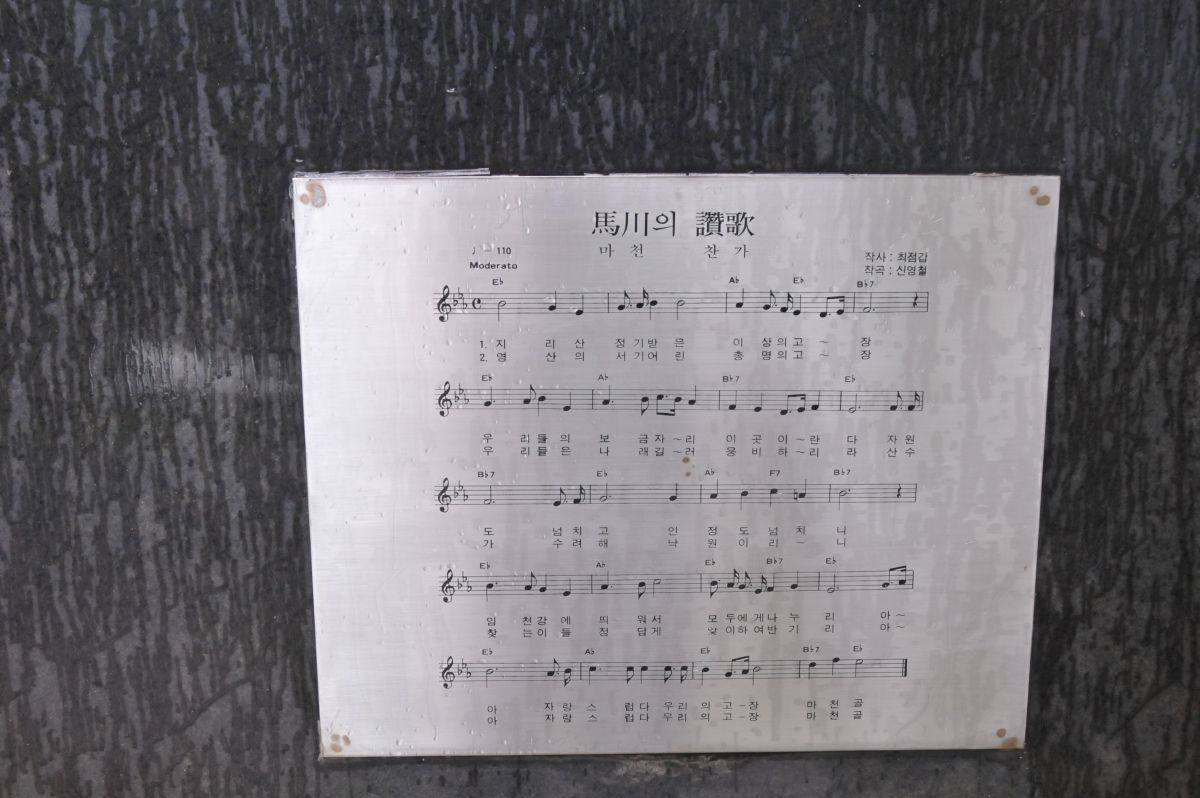 馬川의 讚歌
마천 찬가
♩ = 110
Moderato
작사 : 최점갑
작곡 : 신영철
E♭ A♭ E♭ B♭7
1. 지 리 산 정 기 받 은 이 상 의 고 ~ 장
2. 영 산 의 서 기 어 린 총 명 의 고 ~ 장
E♭ A♭ B♭7 E♭
우 리 들 의 보 금 자 ~ 리 이 곳 이 ~ 란 다 자 원
우 리 들 은 나 래 길 ~ 러 웅 비 하 ~ 리 라 산 수
B♭7 E♭ A♭ F7 B♭7
도 넘 치 고 인 정 도 넘 치 니
가 수 려 해 낙 원 이 리 ~ 니
E♭ A♭ E♭ B♭7 E♭
임 천 강 에 띄 워 서 모 두 에 게 나 누 리 아 ~
찾 는 이 들 정 답 게 맞 이 하 여 반 기 리 아 ~
E♭ A♭ E♭ B♭7 E♭
아 자 랑 스 럽 다 우 리 의 고 - 장 마 천 골
아 자 랑 스 럽 다 우 리 의 고 - 장 마 천 골